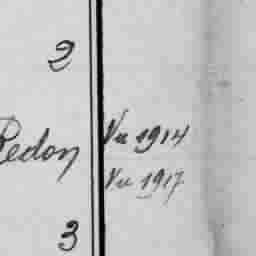 2
Redon Vu 1914
Vu 1917
3